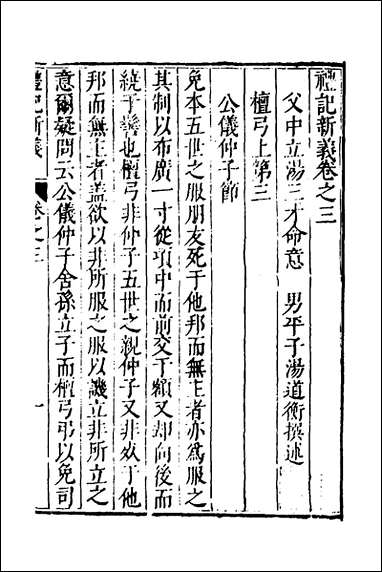 禮記新義卷之三
父中立湯三才命意 男平子湯道衡撰述
檀弓上第三
公儀仲子節
免本五世之服朋友死于他邦而無主者亦爲服之
其制以布廣一寸從項中而前交于額又却向後而
繞于髻也檀弓非仲子五世之親仲子又非死于他
邦而無主者蓋欲以非所服之服以譏立非所立之
意爾疑問云公儀仲子舍孫立子而檀弓弔以免司
禮記新義
卷之三
一